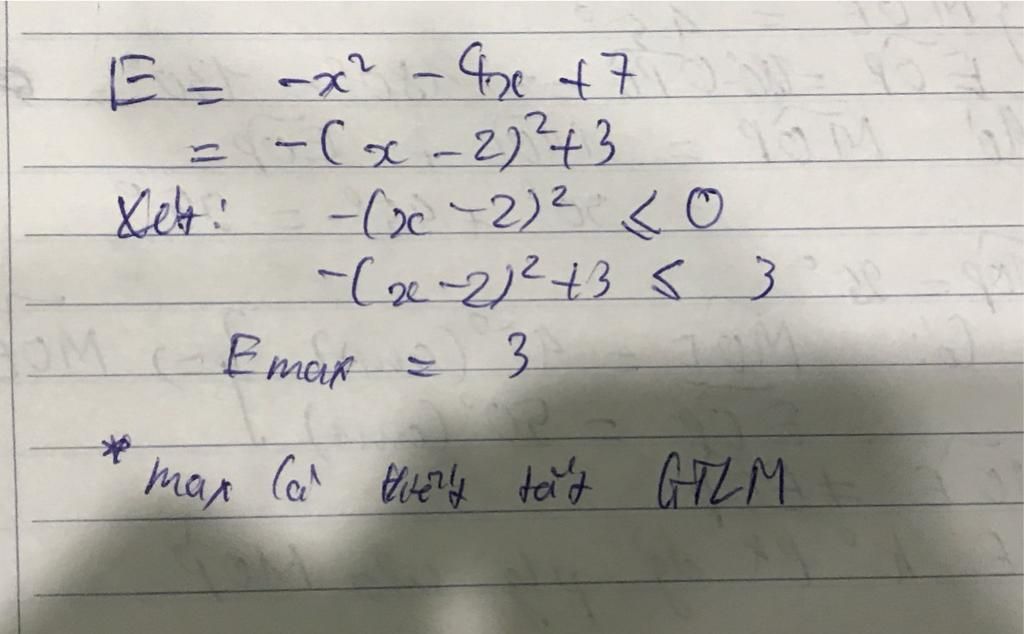 E = -x² - 4x + 7
= -(x - 2)² + 3
Xét: -(x - 2)² ≤ 0
-(x - 2)² + 3 ≤ 3
E max = 3
* max là viết tắt GTLN